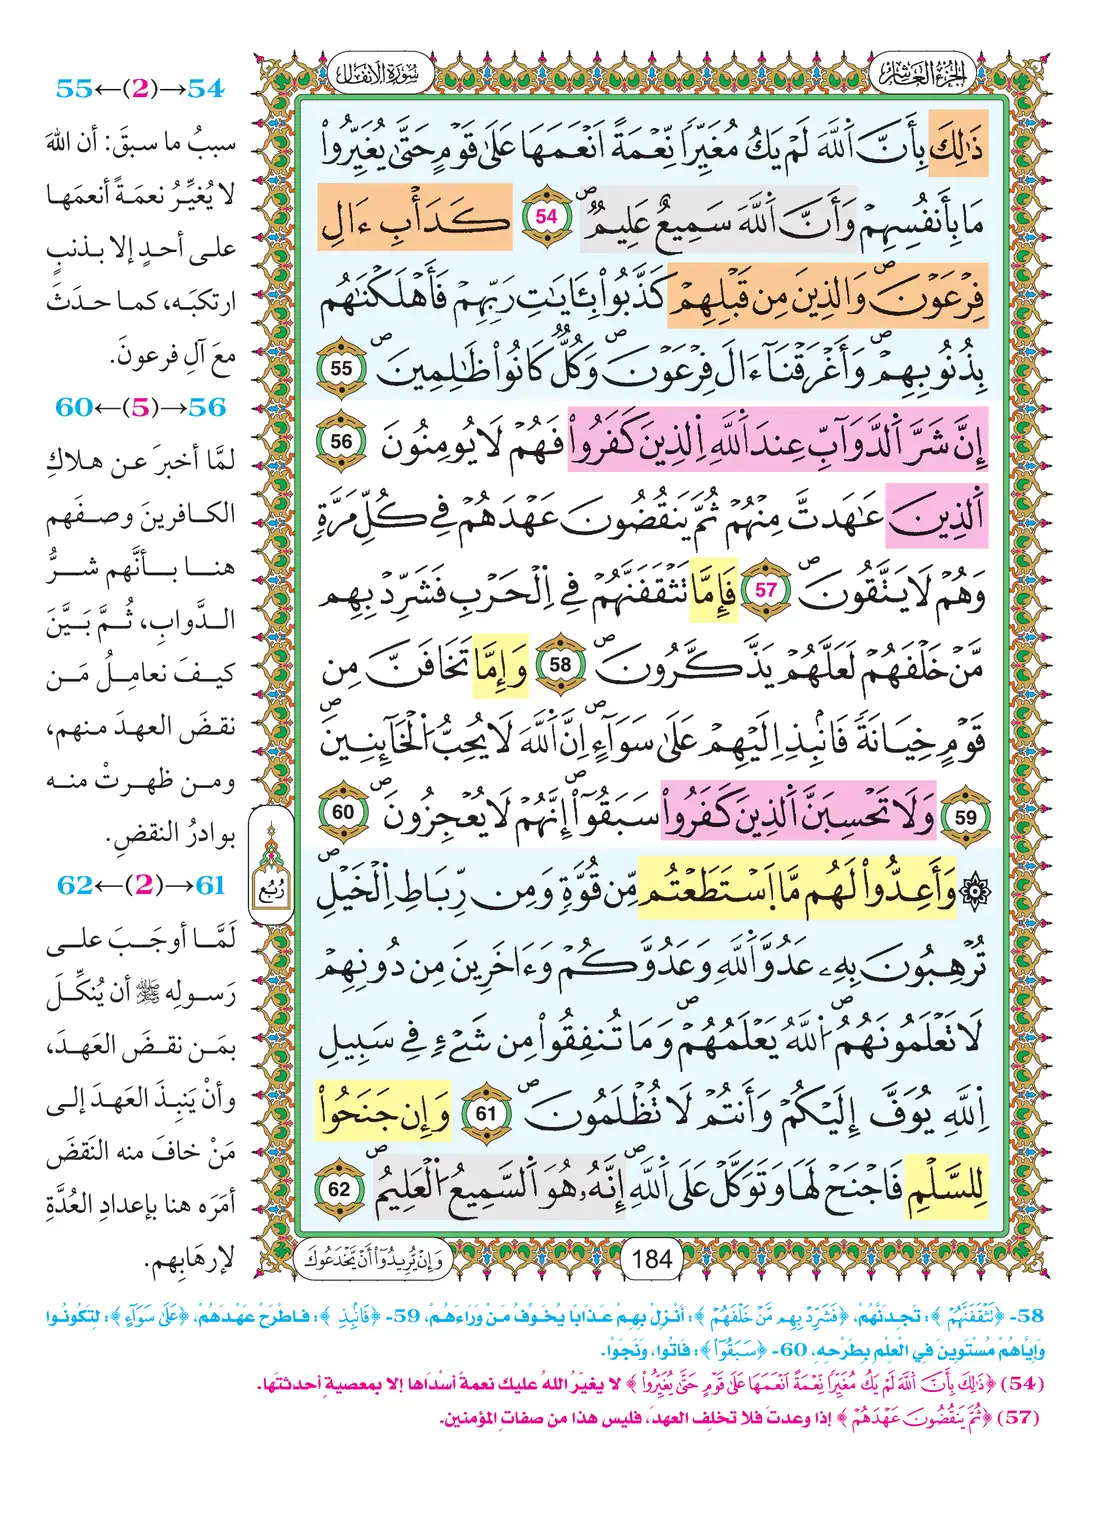 الجزء العاشر
سورة الأنفال
ذَٰلِكَ بِأَنَّ اَ۬للَّهَ لَمْ يَكُ مُغَيِّراٗ نِّعْمَةً اَنْعَمَهَا عَلَىٰ قَوْمٍ حَتَّىٰ يُغَيِّرُواْ
مَا بِأَنفُسِهِمْ وَأَنَّ اَ۬للَّهَ سَمِيعٌ عَلِيمٞۖ 54 كَدَأْبِ ءَالِ
فِرْعَوْنَۖ وَالذِينَ مِن قَبْلِهِمْ كَذَّبُواْ بِـَٔايَٰتِ رَبِّهِمْ فَأَهْلَكْنَٰهُم
بِذُنُوبِهِمْۖ وَأَغْرَقْنَآ ءَالَ فِرْعَوْنَۖ وَكُلّٞ كَانُواْ ظَٰلِمِينَۖ 55
إِنَّ شَرَّ اَ۬لدَّوَآبِّ عِندَ اَ۬للَّهِ اِ۬لذِينَ كَفَرُواْ فَهُمْ لَا يُومِنُونَ 56
اَ۬لذِينَ عَٰهَدتَّ مِنْهُمْ ثُمَّ يَنقُضُونَ عَهْدَهُمْ فِي كُلِّ مَرَّةٖ
وَهُمْ لَا يَتَّقُونَۖ 57 فَإِمَّا تَثْقَفَنَّهُمْ فِي اِ۬لْحَرْبِ فَشَرِّدْ بِهِم
مَّنْ خَلْفَهُمْ لَعَلَّهُمْ يَذَّكَّرُونَۖ 58 وَإِمَّا تَخَافَنَّ مِن
قَوْمٍ خِيَانَةٗ فَانۢبِذِ اِلَيْهِمْ عَلَىٰ سَوَآءٍۖ اِنَّ اَ۬للَّهَ لَا يُحِبُّ اُ۬لْخَآئِنِينَۖ
59 وَلَا تَحْسِبَنَّ اَ۬لذِينَ كَفَرُواْ سَبَقُوٓاْۖ إِنَّهُمْ لَا يُعْجِزُونَۖ 60
وَأَعِدُّواْ لَهُم مَّا اَ۪سْتَطَعْتُم مِّن قُوَّةٖ وَمِن رِّبَاطِ اِ۬لْخَيْلِۖ
تُرْهِبُونَ بِهِۦ عَدُوَّ اَ۬للَّهِ وَعَدُوَّكُمْ وَءَاخَرِينَ مِن دُونِهِمْ
لَا تَعْلَمُونَهُمُۖ اُ۬للَّهُ يَعْلَمُهُمْۖ وَمَا تُنفِقُواْ مِن شَےْءٖ فِي سَبِيلِ
اِ۬للَّهِ يُوَفَّ إِلَيْكُمْ وَأَنتُمْ لَا تُظْلَمُونَۖ 61 وَإِن جَنَحُواْ
لِلسَّلْمِ فَاجْنَحْ لَهَا وَتَوَكَّلْ عَلَى اَ۬للَّهِۖ إِنَّهُۥ هُوَ اَ۬لسَّمِيعُ اُ۬لْعَلِيمُۖ 62
184
وَإِنْ يُّرِيدُوٓاْ أَنْ يَّخْدَعُوكَ
رُبُع
55←(2)→54
سببُ ما سبقَ: أن اللهَ
لا يُغيِّرُ نعمَةً أنعمَها
على أحدٍ إلا بذنبٍ
ارتكبَه، كما حدَثَ
معَ آلِ فرعونَ.
60←(5)→56
لمَّا أخبرَ عن هلاكِ
الكافرينَ وصفَهم
هنا بأنَّهم شرُّ
الدَّوابِ، ثُمَّ بَيَّنَ
كيفَ نعامِلُ مَن
نقضَ العهدَ منهم،
ومن ظهرتْ منه
بوادرُ النقضِ.
62←(2)→61
لَمَّا أوجَبَ على
رَسولِه ﷺ أن يُنكِّلَ
بمَن نقضَ العَهدَ،
وأنْ يَنبِذَ العَهدَ إلى
مَنْ خافَ منه النَقضَ
أمَرَه هنا بإعدادِ العُدَّةِ
لإرهَابِهم.
58- ﴿تَثْقَفَنَّهُمْ﴾: تَجِدَنَّهُمْ، ﴿فَشَرِّدْ بِهِم مَّنْ خَلْفَهُمْ﴾: أَنْزِلْ بِهِمْ عَذَابًا يُخَوِّفُ مَنْ وَرَاءَهُمْ، 59- ﴿فَانۢبِذِ﴾: فَاطْرَحْ عَهْدَهُمْ، ﴿عَلَىٰ سَوَآءٍ﴾: لِتَكُونُوا
وَإِيَّاهُمْ مُسْتَوِينَ فِي الْعِلْمِ بِطَرْحِهِ، 60- ﴿سَبَقُوٓاْ﴾: فَاتُوا، وَنَجَوْا.
(54) ﴿ذَٰلِكَ بِأَنَّ اَ۬للَّهَ لَمْ يَكُ مُغَيِّراٗ نِّعْمَةً اَنْعَمَهَا عَلَىٰ قَوْمٍ حَتَّىٰ يُغَيِّرُواْ﴾ لا يغيّرُ اللهُ عليك نعمةً أسْدَاها إلا بمعصيةٍ أحدثتَها.
(57) ﴿ثُمَّ يَنقُضُونَ عَهْدَهُمْ﴾ إذا وعدتَ فلا تخلفِ العهدَ، فليس هذا من صفاتِ المؤمنين.